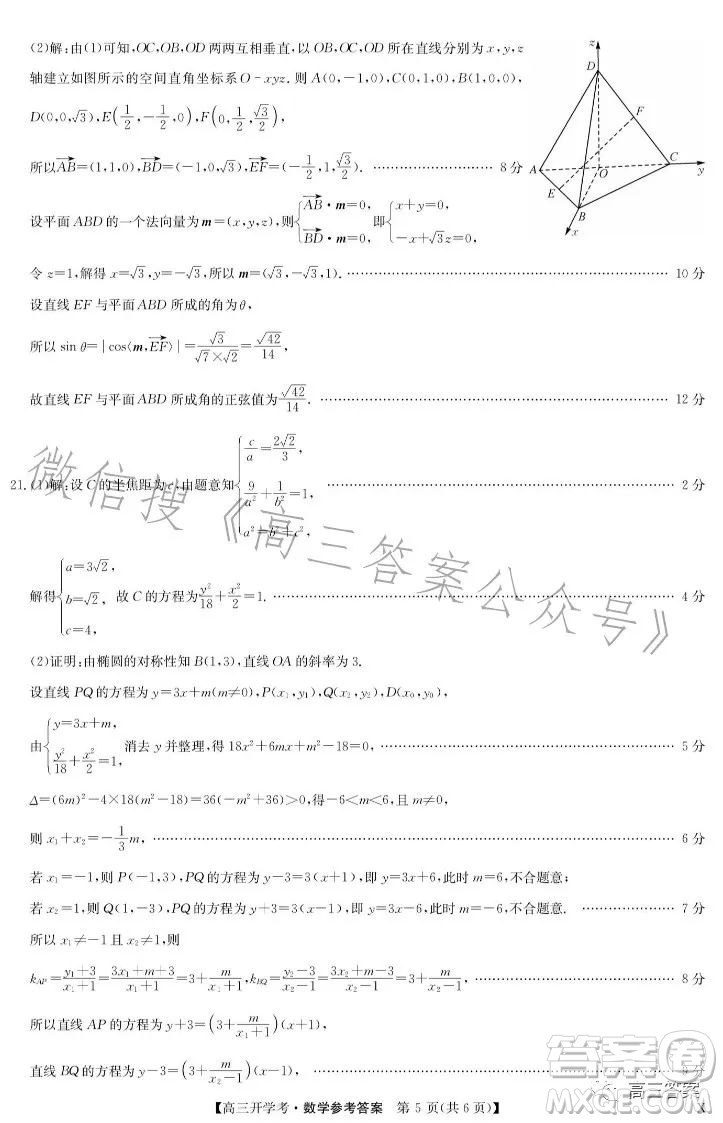 (2)解:由(1)可知,OC,OB,OD两两互相垂直,以OB,OC,OD所在直线分别为x,y,z
轴建立如图所示的空间直角坐标系O-xyz.则A(0,-1,0),C(0,1,0),B(1,0,0),
D(0,0,√3),E(1/2,-1/2,0),F(0,1/2,√3/2),
所以AB→=(1,1,0),BD→=(-1,0,√3),EF→=(-1/2,1,√3/2). …… 8分
z
D
F
A
O
C
y
E
B
x
设平面ABD的一个法向量为m=(x,y,z),则{AB→·m=0, BD→·m=0, 即{x+y=0, -x+√3z=0,
令z=1,解得x=√3,y=-√3,所以m=(√3,-√3,1). …… 10分
设直线EF与平面ABD所成的角为θ,
所以sin θ=|cos⟨m,EF→⟩|=√3/(√7×√2)=√42/14,
故直线EF与平面ABD所成角的正弦值为√42/14. …… 12分
21.(1)解:设C的半焦距为c,由题意知{c/a=2√2/3, 9/a²+1/b²=1, a²=b²+c², …… 2分
解得{a=3√2, b=√2, c=4, 故C的方程为y²/18+x²/2=1. …… 4分
(2)证明:由椭圆的对称性知B(1,3),直线OA的斜率为3.
设直线PQ的方程为y=3x+m(m≠0),P(x₁,y₁),Q(x₂,y₂),D(x₀,y₀),
由{y=3x+m, y²/18+x²/2=1, 消去y并整理,得18x²+6mx+m²-18=0, …… 5分
Δ=(6m)²-4×18(m²-18)=36(-m²+36)>0,得-6<m<6,且m≠0,
则x₁+x₂=-1/3m, …… 6分
若x₁=-1,则P(-1,3),PQ的方程为y-3=3(x+1),即y=3x+6,此时m=6,不合题意;
若x₂=1,则Q(1,-3),PQ的方程为y+3=3(x-1),即y=3x-6,此时m=-6,不合题意. …… 7分
所以x₁≠-1且x₂≠1,则
k_AP=(y₁+3)/(x₁+1)=(3x₁+m+3)/(x₁+1)=3+m/(x₁+1),k_BQ=(y₂-3)/(x₂-1)=(3x₂+m-3)/(x₂-1)=3+m/(x₂-1), …… 8分
所以直线AP的方程为y+3=(3+m/(x₁+1))(x+1),
直线BQ的方程为y-3=(3+m/(x₂-1))(x-1), …… 9分
【高三开学考·数学参考答案 第5页(共6页)】 X
微信搜《高三答案公众号》
答案圈
高三答案